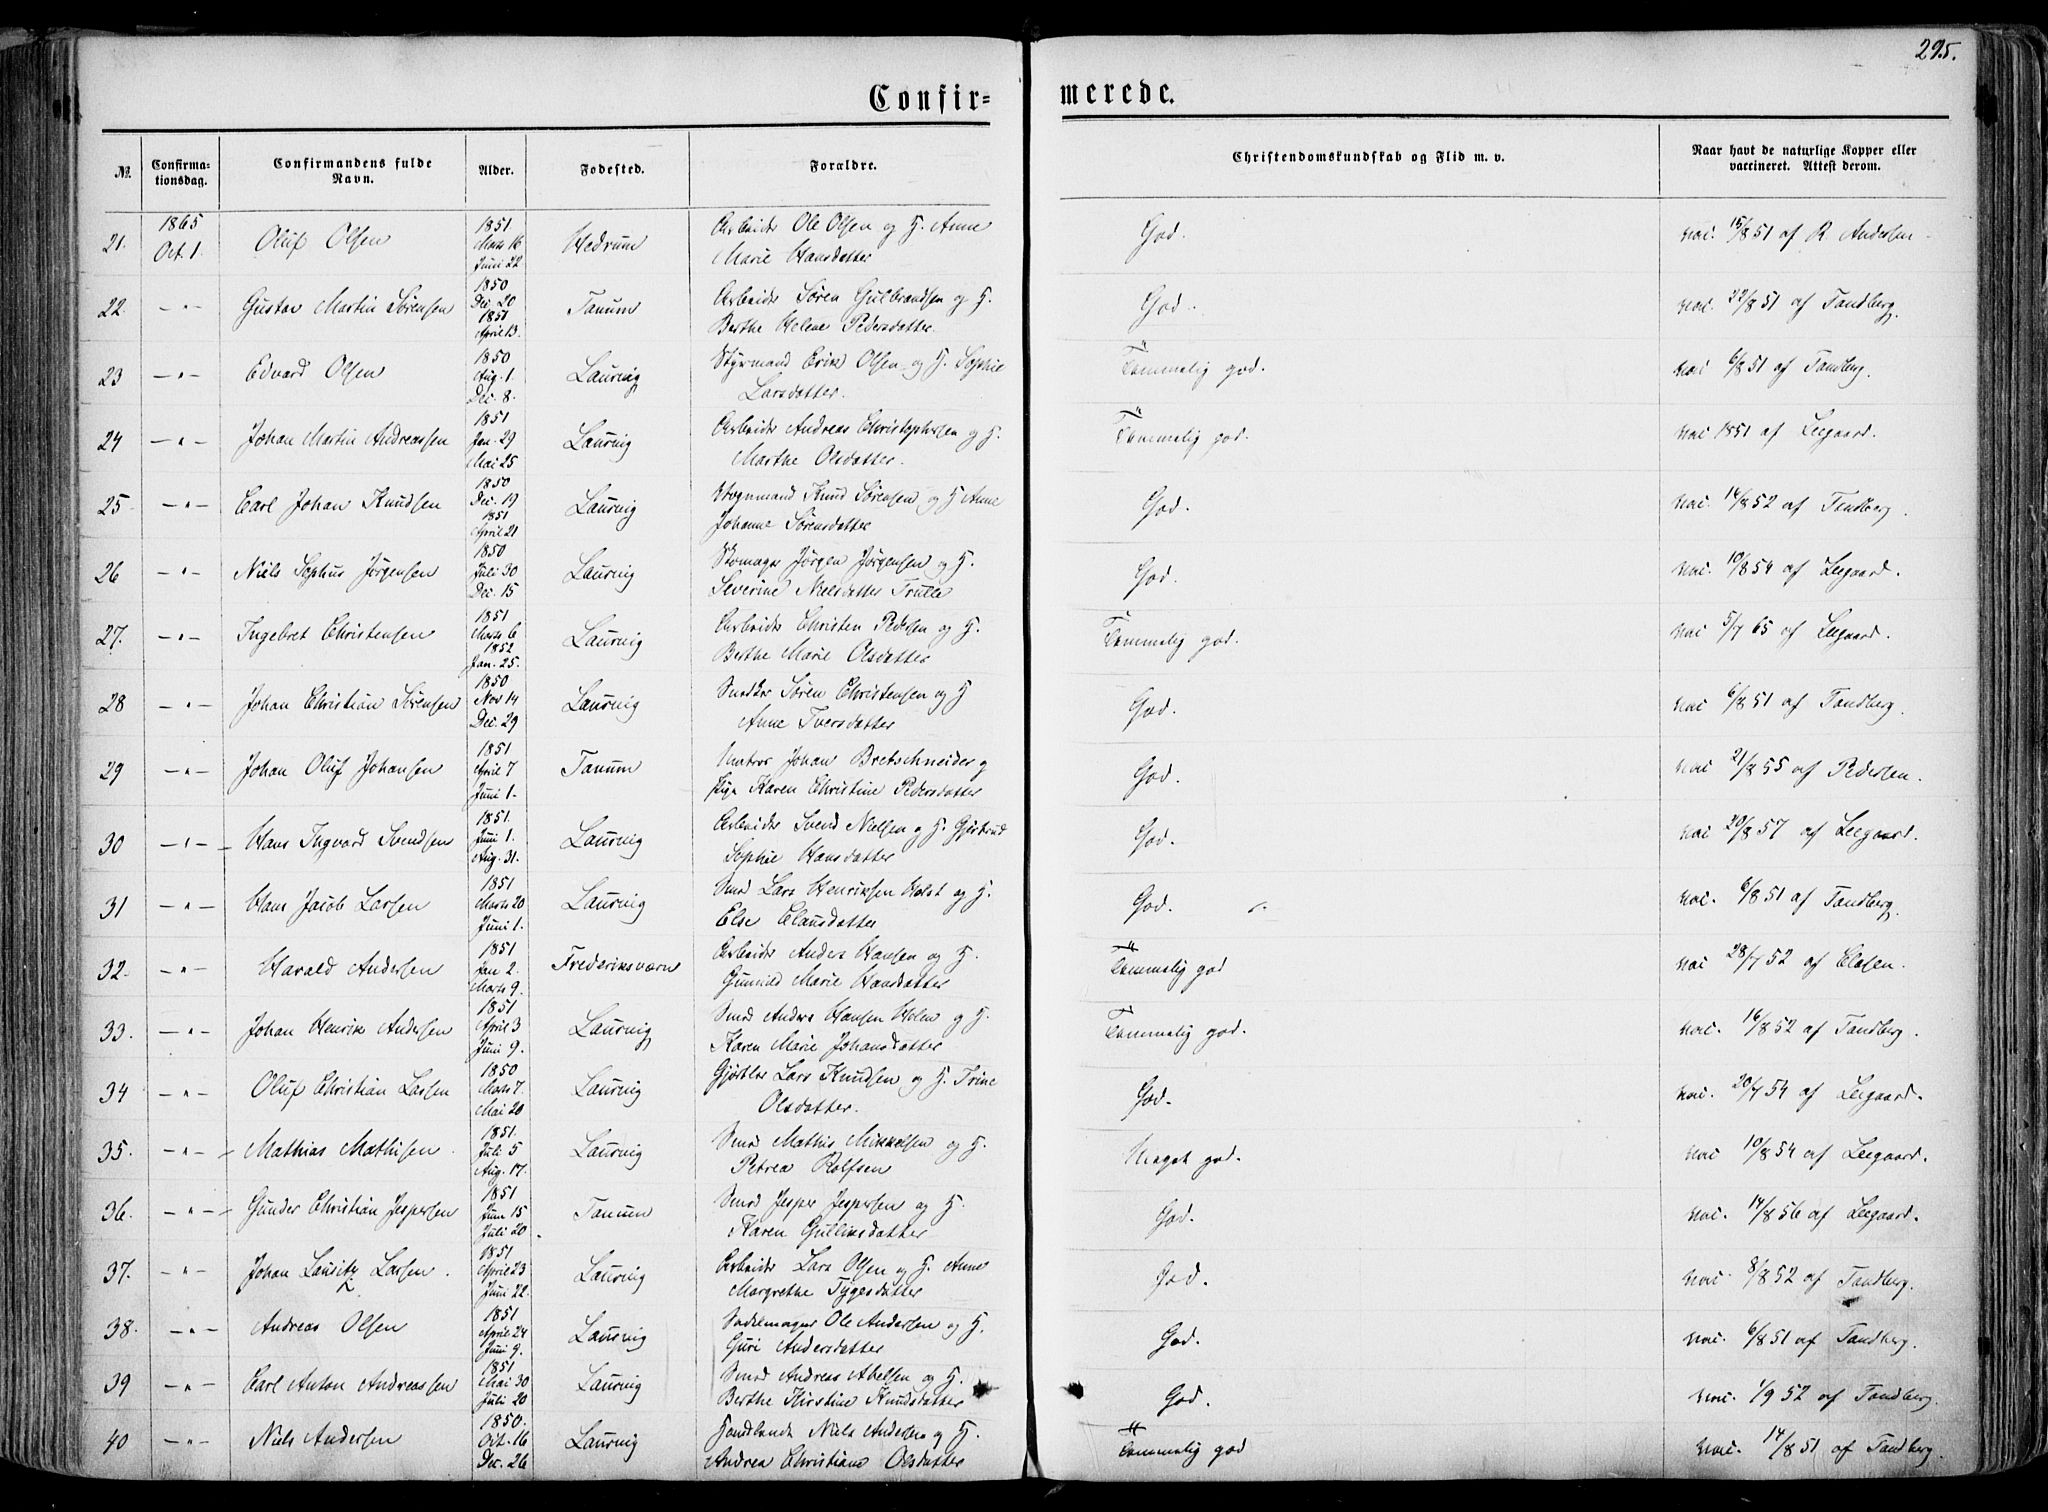 295.
Confir=
merede.
№. Confirma-tionsdag. Confirmandens fulde Navn. Alder. Fødested. Forældre. Christendomskundskab og Flid m. v. Naar havt de naturlige Kopper eller vaccineret. Attest derom.
21. 1865 Oct. 1. Oluf Olsen 1851 Marts 16 Juni 22. Hedrum Arbeider Ole Olsen og H. Anne
Marie Hansdatter God. vac. 15/8 51 af R. Andersen
22. -"- Gustav Martin Sørensen 1850 Dec. 20 1851 April 13. Tanum Arbeider Søren Gulbrandsen og H.
Berthe Helene Pedersdatter. God. vac. 22/8 51 af Tandberg.
23 -"- Edvard Olsen 1850 Aug. 1. Dec. 8. Laurvig Styrmand Erik Olsen og H. Sophie
Larsdatter. Temmelig god. vac. 6/8 51 af Tandberg.
24 -"- Johan Martin Andreassen 1851 Jan. 29 Mai 25 Laurvig Arbeider Andreas Christophersen og H.
Marthe Olsdatter. Temmelig god. vac 1851 af Leegaard.
25 -"- Carl Johan Knudsen 1850 Dec. 19 1851 April 21 Laurvig Knud Sørensen og H. Anne
Johanne Sørensdatter God. vac. 14/8 52 af Tandberg.
26 -"- Niels Sophus Jørgensen 1850 Juli 30 Dec. 15 Laurvig Skomager Jørgen Jørgensen og H.
Severine Nielsdatter Trulle God. vac. 10/8 54 af Leegaard.
27. -"- Ingebret Christensen 1851 Marts 6 1852 Jan. 25. Laurvig Arbeider Christen Pedersen og H.
Berthe Marie Olsdatter Temmelig god. vac 5/7 65 af Leegaard.
28 -"- Johan Christian Sørensen 1850 Nov 14 Dec. 29 Laurvig Snedker Søren Christensen og H
Anne Iversdatter God. vac 6/8 51 af Tandberg.
29 -"- Johan Oluf Johansen 1851 April 7 Juni 1. Tanum Matros Johan Bretschneider og
Pige Karen Christine Pedersdatter God. vac 21/8 55 af Pedersen.
30 -"- Hans Ingvard Svendsen 1851. Juni 1. Aug. 31. Laurvig Arbeider Svend Nielsen og H. Gjertrud
Sophie Hansdatter God. vac 20/8 57 af Leegaard.
31 -"- Hans Jacob Larsen 1851 Marts 20 Juni 1. Laurvig Smed Lars Henriksen Holst og H.
Else Clausdatter God. vac. 6/8 51 af Tandberg.
32. -"- Harald Andersen 1851 Jan 2. Marts 9. Frederiksværn Arbeider Anders Hansen og H.
Gunild Marie Hansdatter Temmelig god vac 28/7 52 af Clasen.
33. -"- Johan Henrik Andersen 1851 April 3 Juni 9. Laurvig Smed Anders Hansen Holm og H.
Karen Marie Johansdatter Temmelig god. vac. 16/8 52 af Tandberg.
34 -"- Oluf Christian Larsen 1850 Marts 7. Mai 20 Laurvig Gjørtler Lars Knudsen og H. Trine
Olsdatter. God. vac. 20/7 54 af Leegaard.
35. -"- Mathias Mathisen. 1851. Juli 5 Aug. 17. Laurvig Smed Mathis Mikkelsen og H.
Petrea Rolfsen Meget god. vac 10/8 54 af Leegaard.
36. -"- Gunder Christian Jespersen 1851 Juni 15 Juli 20 Tanum Smed Jesper Jespersen og H.
Karen Gulliksdatter God. vac. 14/8 56 af Leegaard.
37. -"- Johan Lauritz Larsen. 1851 April 23 Juni 22. Laurvig Arbeider Lars Olsen og H. Anne
Margrethe Tygesdatter God. vac. 8/8 52 af Tandberg.
38. -"- Andreas Olsen 1851 April 24 Juni 9. Laurvig Sadelmager Ole Andersen og H.
Guri Andersdatter God. vac. 6/8 51 af Tandberg.
39 -"- Carl Anton Andreassen 1851 Mai 30 Juli 20 Laurvig Smed Andreas Abelsen og H.
Berthe Kirstine Knudsdatter God. vac. 1/9 52 af Tandberg.
40 -"- Niels Andersen 1850. Oct. 16 Dec. 26 Laurvig Niels Andersen og H.
Andrea Christiane Olsdatter Temmelig god vac. 14/8 51 af Tandberg.